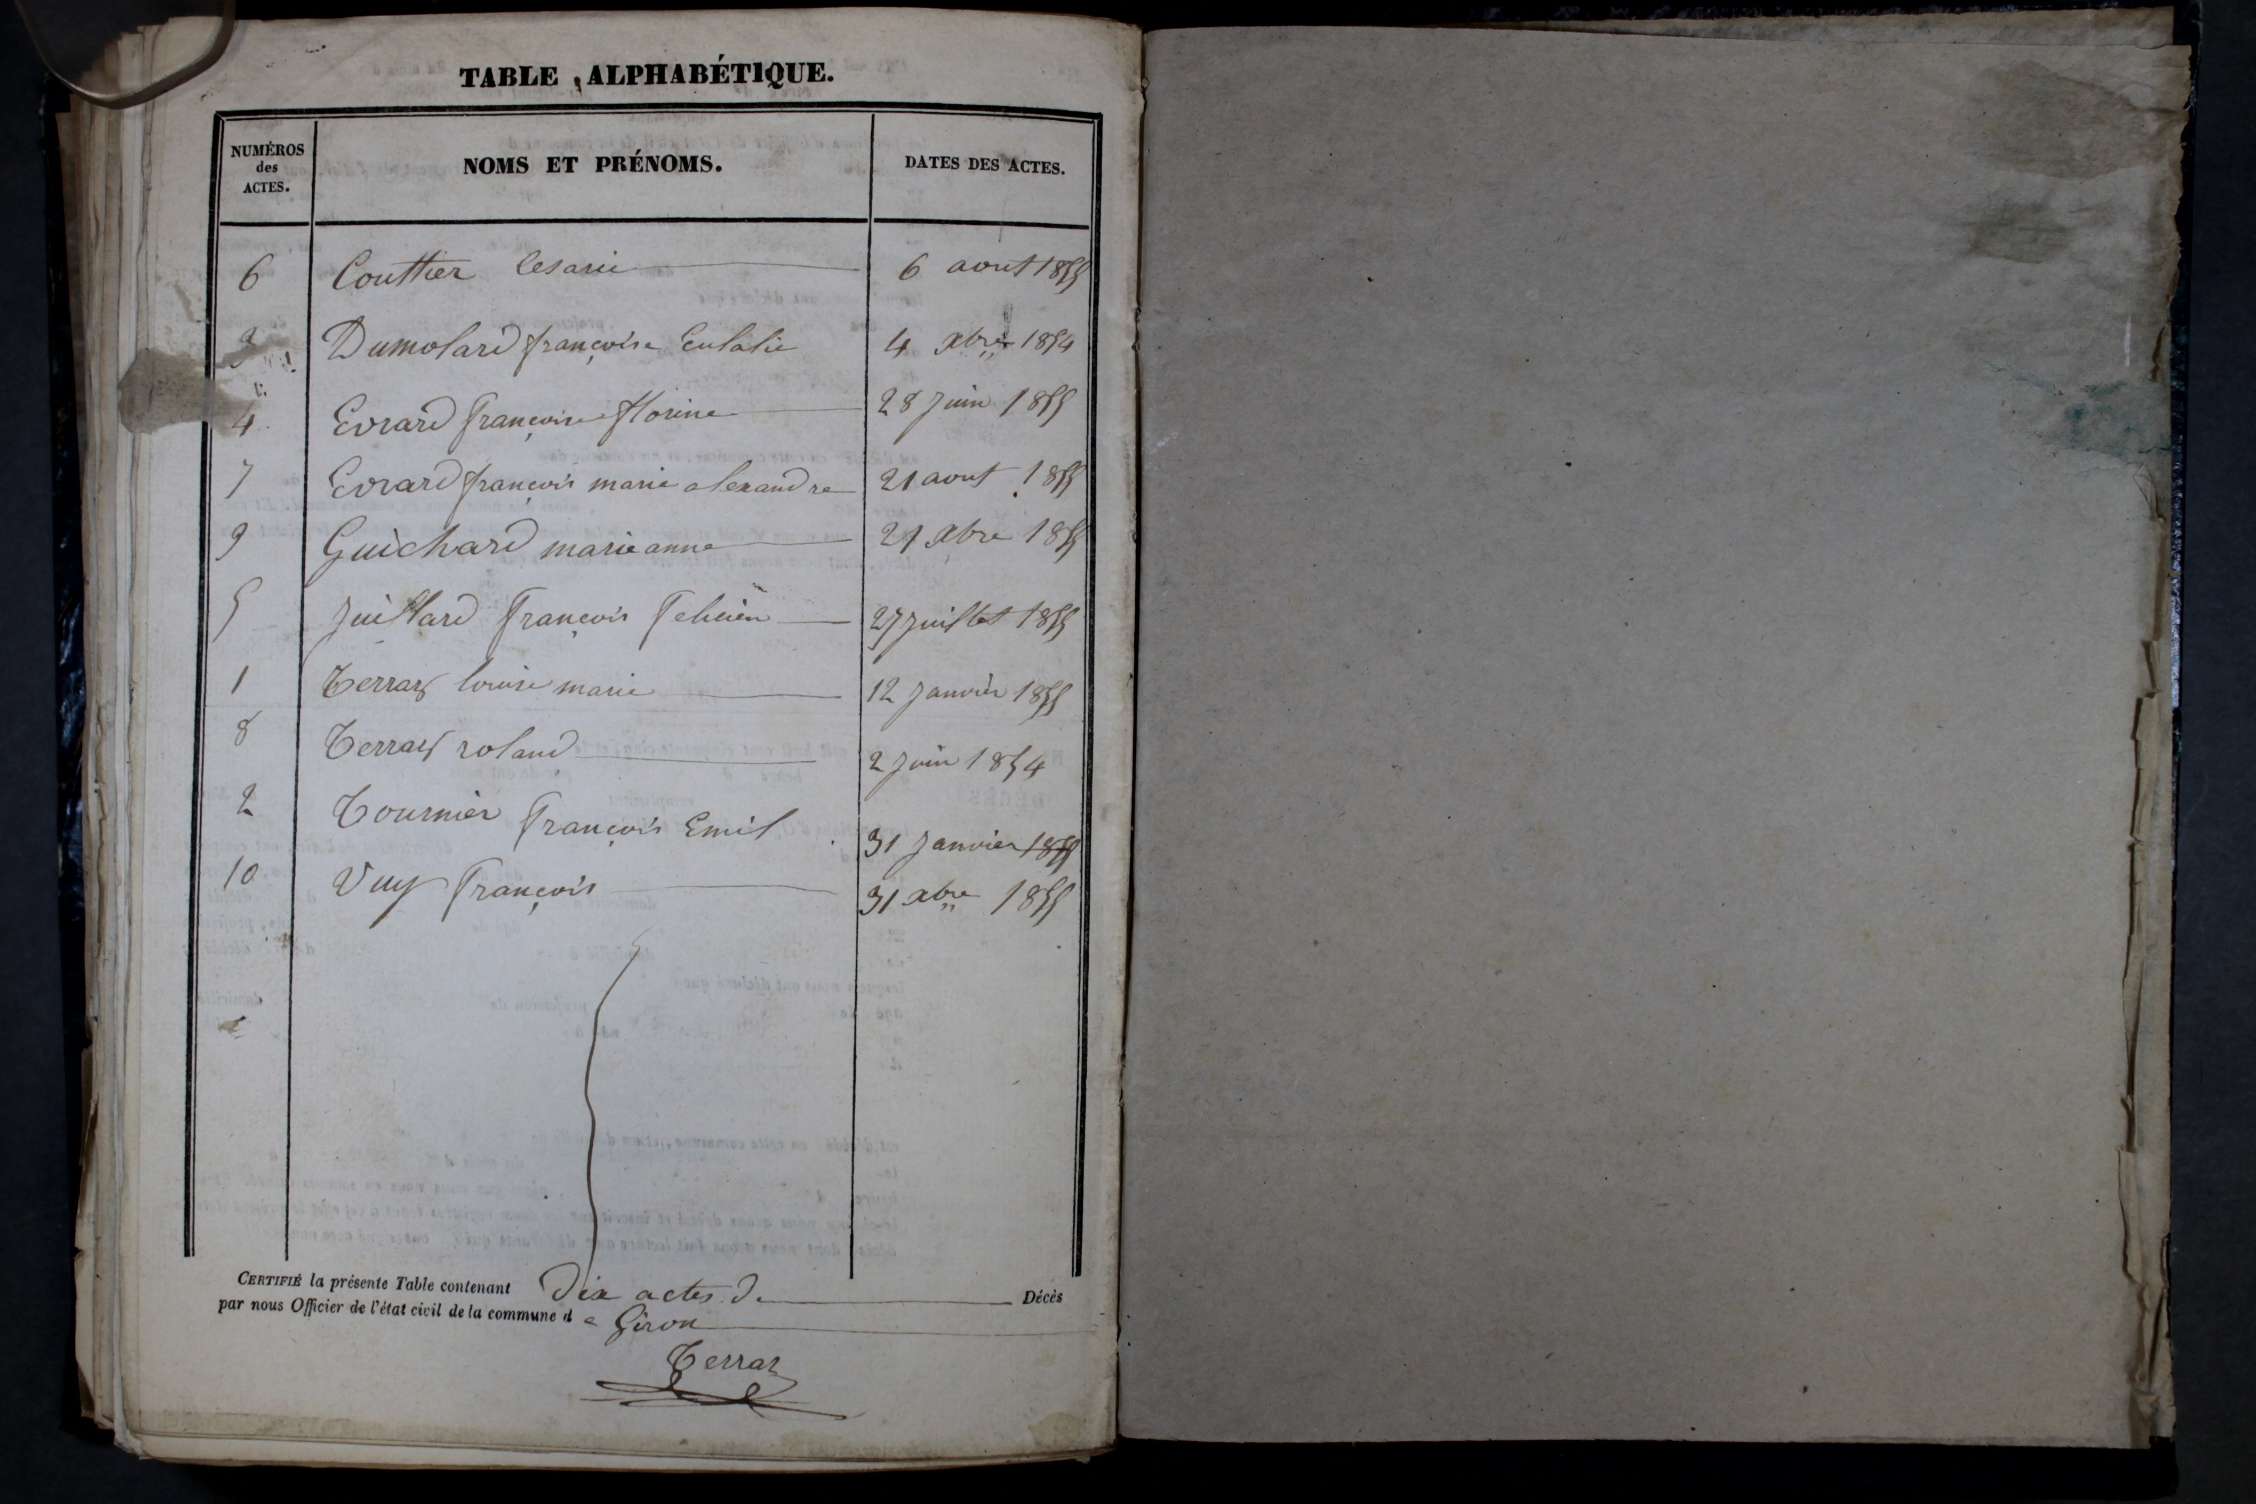 TABLE ALPHABÉTIQUE.
NUMÉROS des ACTES. NOMS ET PRÉNOMS. DATES DES ACTES.
6 Couttier Cesarie 6 aout 1855
3 Dumolard françoise Eulalie 4 xbre 1854
4 Evrard françoise florine 28 juin 1855
7 Evrard françois marie alexandre 21 aout 1855
9 Guichard marie anne 21 xbre 1855
5 Juillard françois felicien 27 juillet 1855
1 Terraz louise marie 12 janvier 1855
8 Terraz roland 2 juin 1854
2 Tournier françois Emil 31 janvier 1855
10 Vuy françois 31 xbre 1855
CERTIFIÉ la présente Table contenant Dix actes de Décès
par nous Officier de l'état civil de la commune d e Giron
Terraz